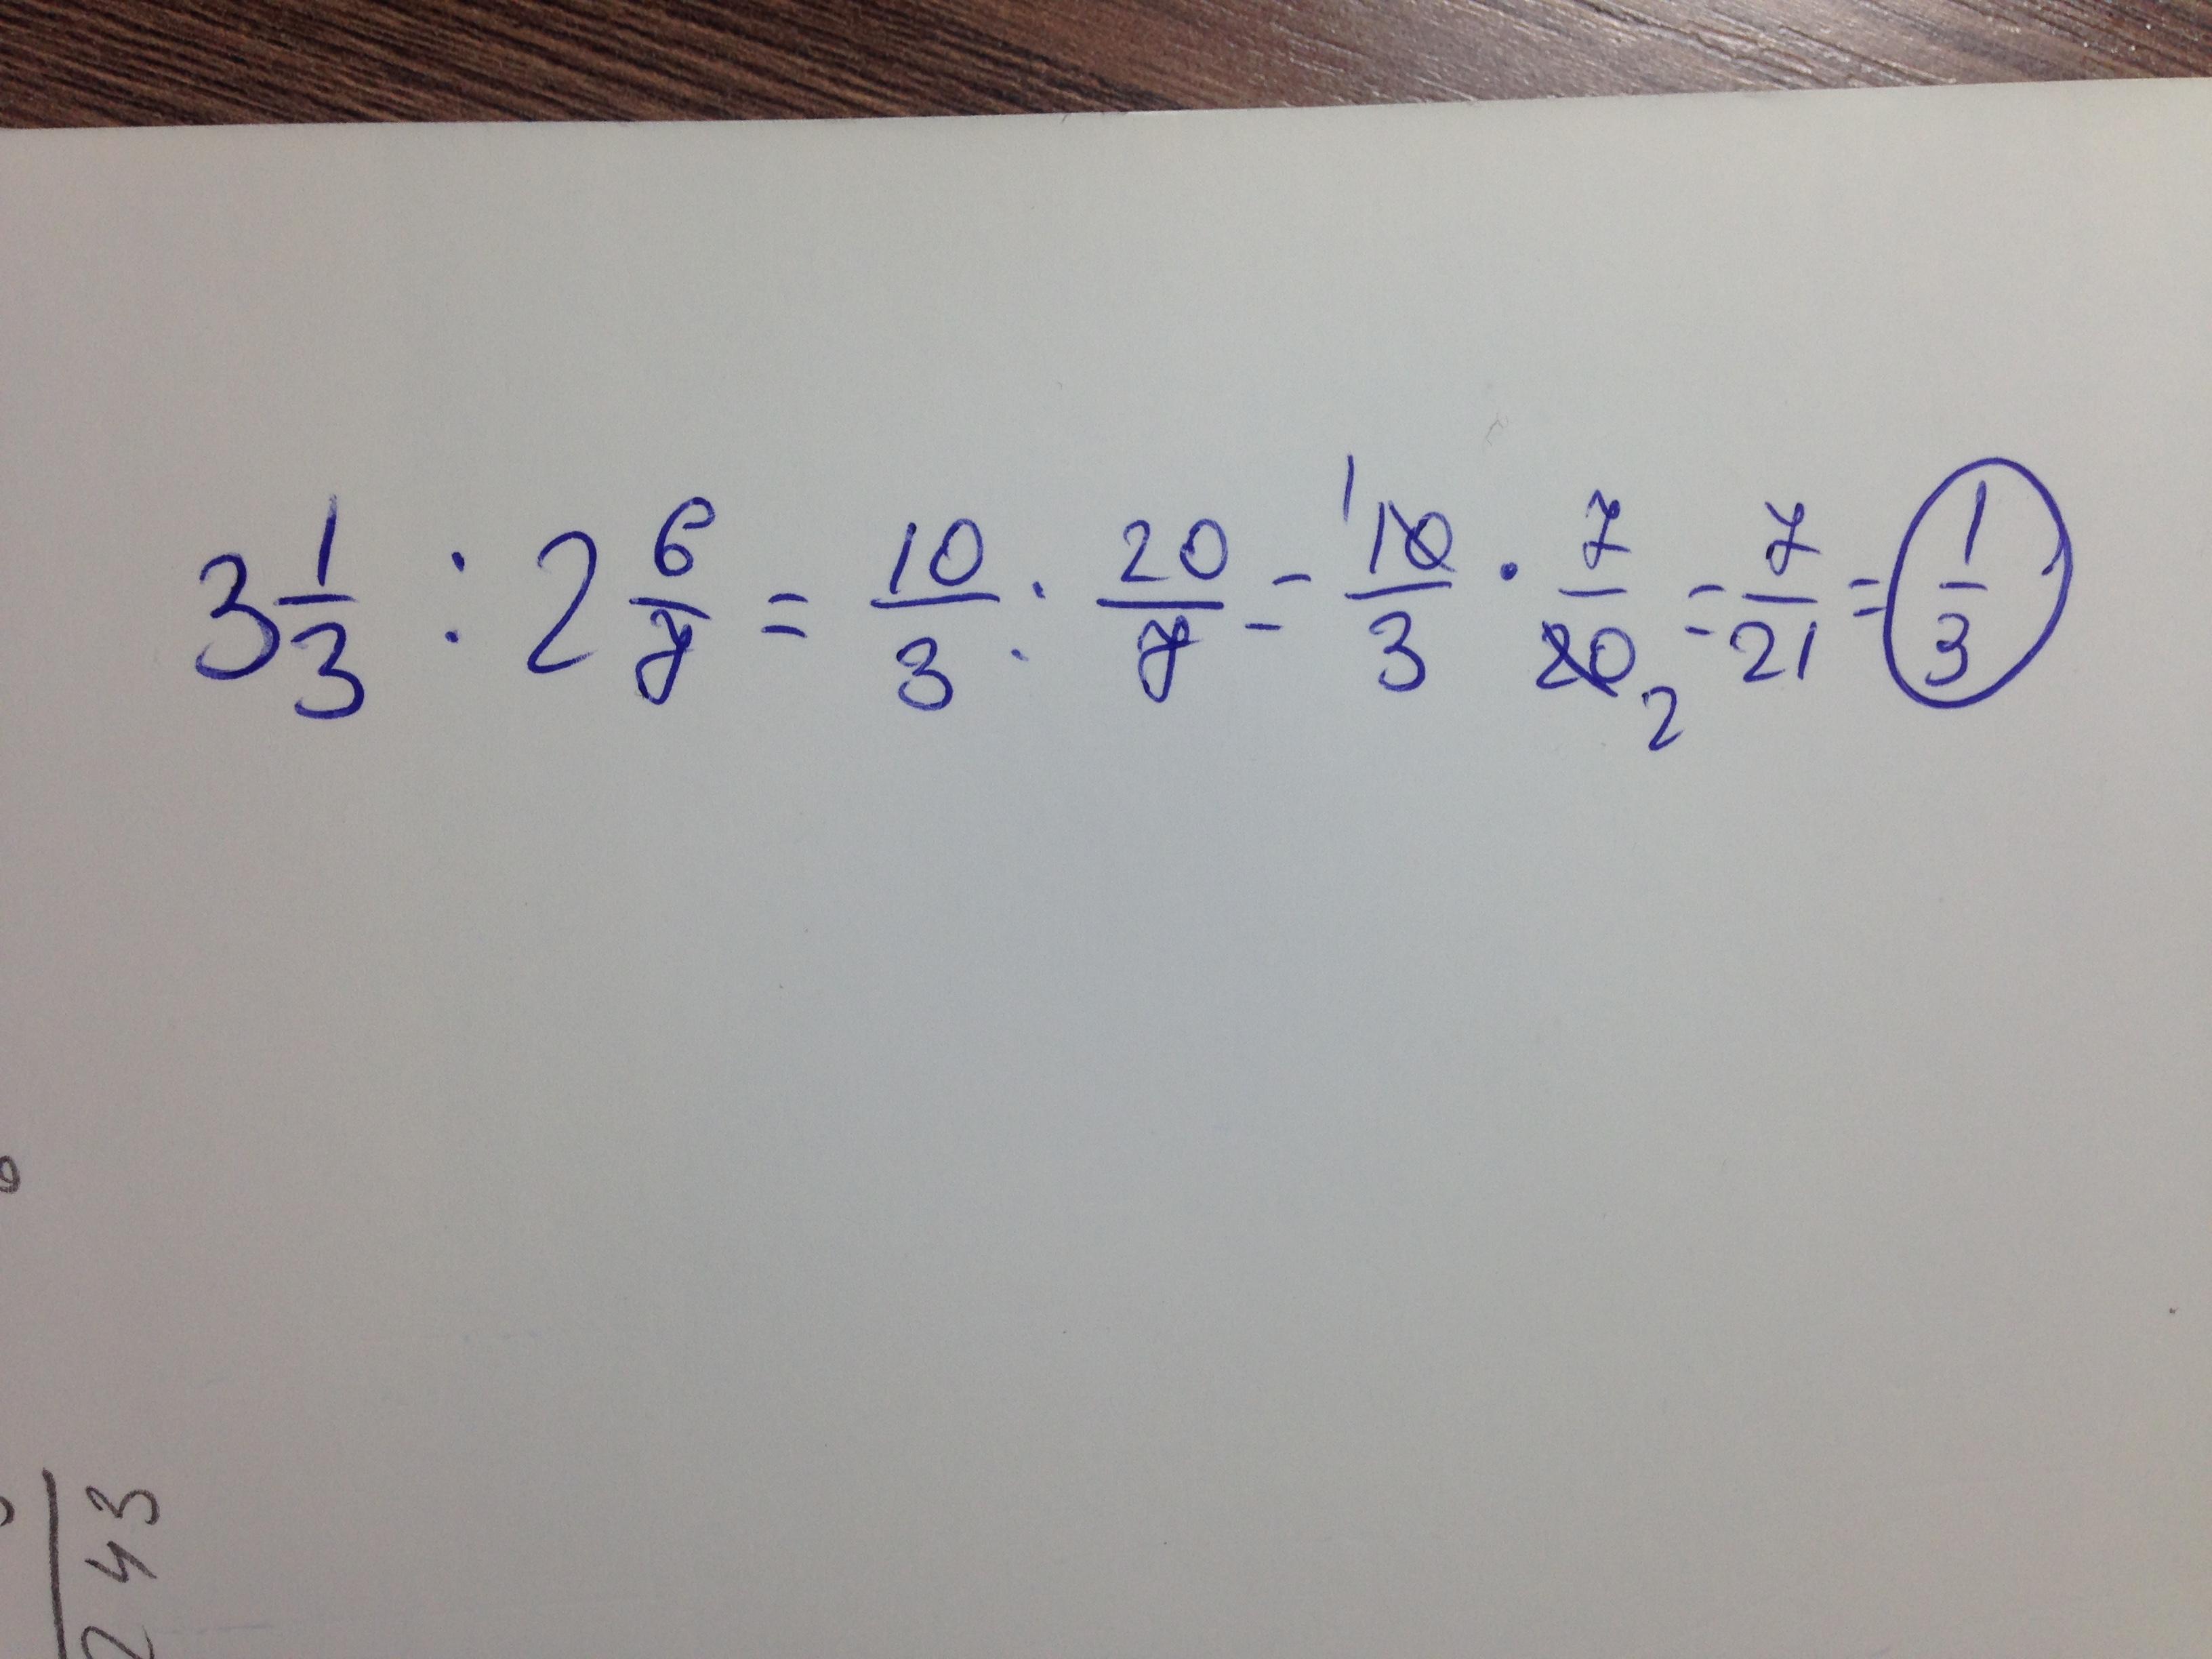 3 1/3 : 2 6/7 = 10/3 : 20/7 = 1 10/3 · 7/20 2 = 7/21 = 1/3
243